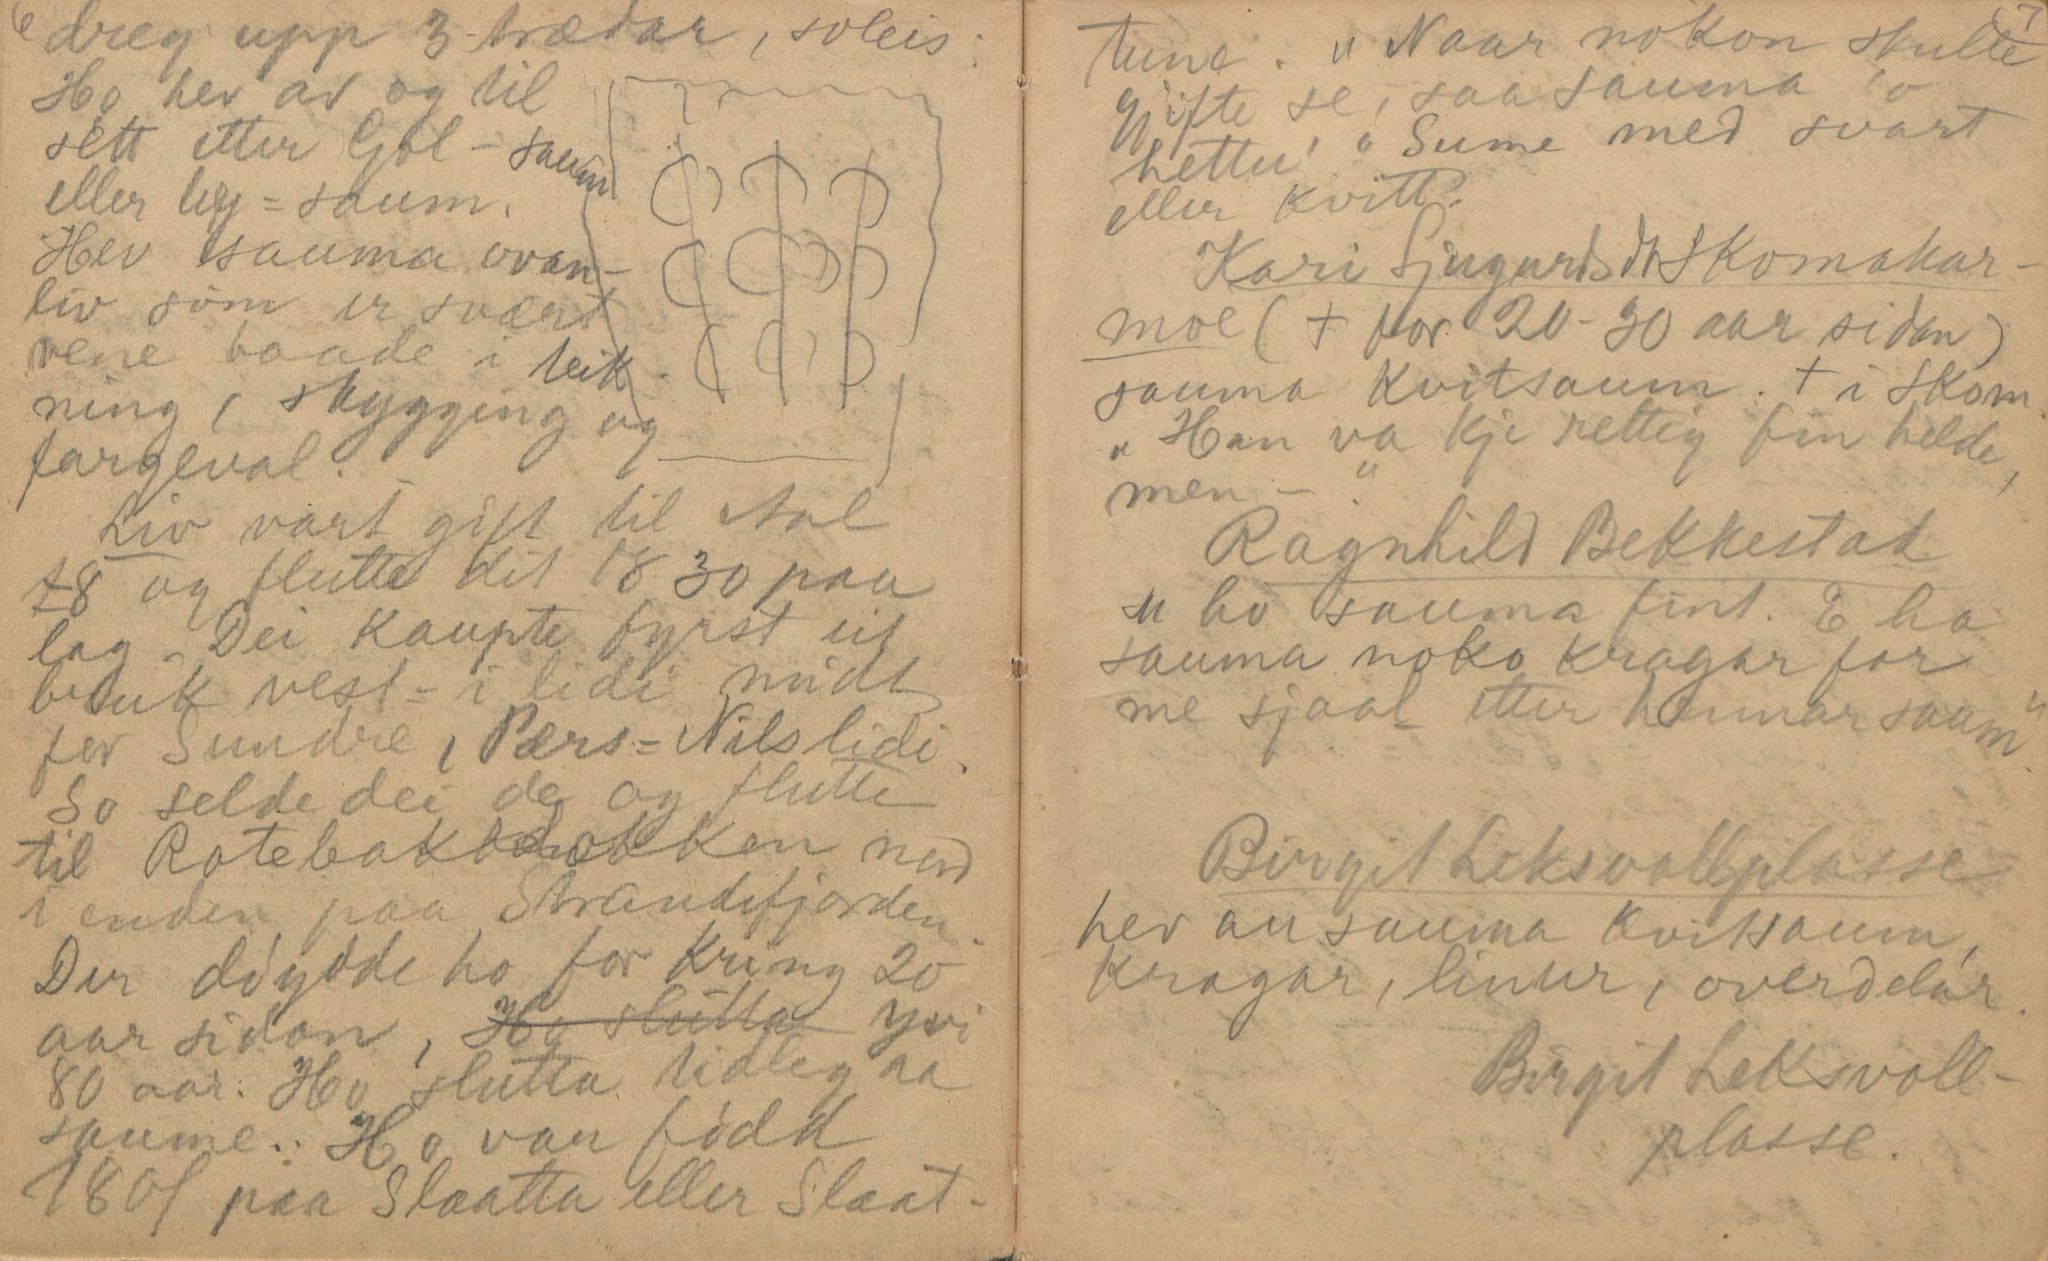 6
dreg upp 3 trædar, soleis:
Ho hev av og til
sett etter Gol-saum
eller hey=saum.
Hev sauma ovan-
liv som er svært
vene baade i teik-
ning, skygging og
fargeval. -
Liv vart gift til Aal
28 og flutte dit 18 30 paa
lag. Dei kaupte fyrst eit
bruk vest=i lidi midt
for Sundre, Pers=Nilslidi.
So selde dei de og flutte
til Rotebakkebakken ned
i enden paa Strandefjorden.
Der døydde ho for kring 20
aar sidan, Ho slutta yvi
80 aar. Ho slutta tidleg aa
saume. Ho var född
1801 paa Slaatta eller Slaat-
7
tune. "Naar nokon skulle
gjifte se, saa sauma 'o
hettu," Sume med svart
eller kvitt.
Kari Sjugurdsdtr Skomakar-
moe (+ for 20-30 aar sidan)
sauma kvitsaum. + i Skom.
"Han va kje rettig fin helde,
men - "
Ragnhild Bekkestad
"ho sauma fint. E ha
sauma noko kragar for
me sjaal etter hennar saum".
Birgit Leksvollplasse
hev au sauma kvitsaum,
kragar, linur, overdelar.
Birgit Leksvoll-
plasse.